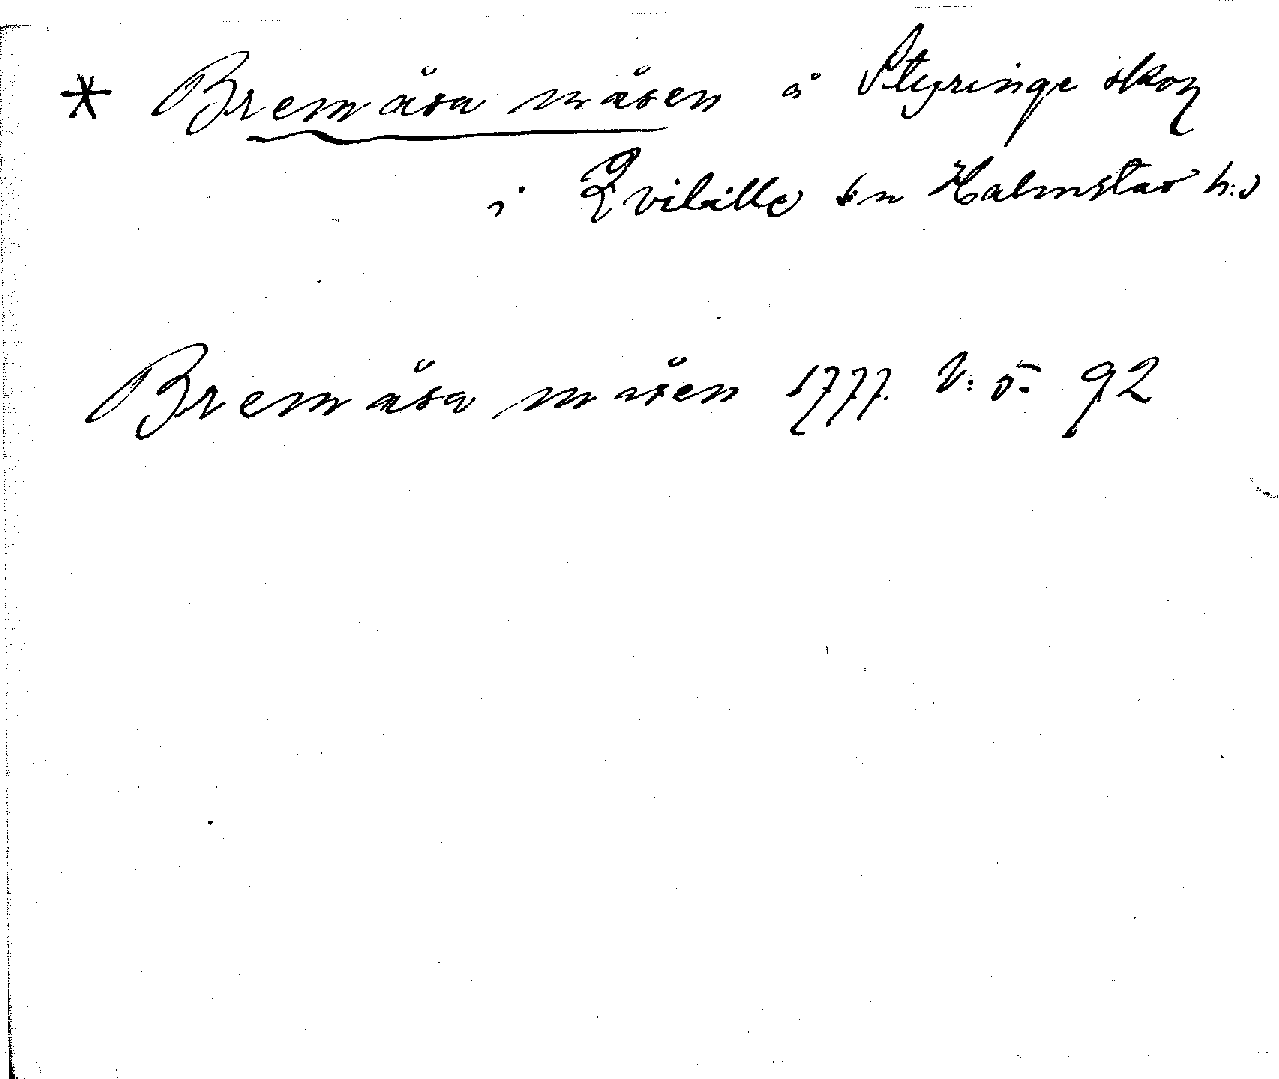 * Bremåsa måsen å Styringe skog
i Qvibille sn Halmstad h:d
Bremåsa måsen 1777. V: 5. 92